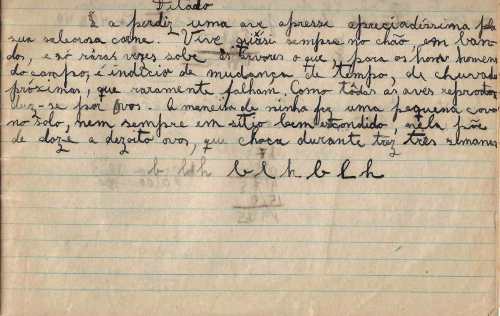 Ditado
É a perdiz uma ave apresse apreciadíssima pe
sua saborosa carne. Vive quási sempre no chão, em ban-
dos, e só ráras vezes sobe ás árvores o que, para os homens
do campo, é indício de mudança de tempo, de chuvas
próximas, que raramente falham. Como tôdas as aves reprodu
duz-se por ovos. A maneira de ninho faz uma pequena cova
no solo, nem sempre em sítio bem escondido, nela põe
de doze a dezoito ovos, que choca durante trez três semanas
b lbh b l h b l h